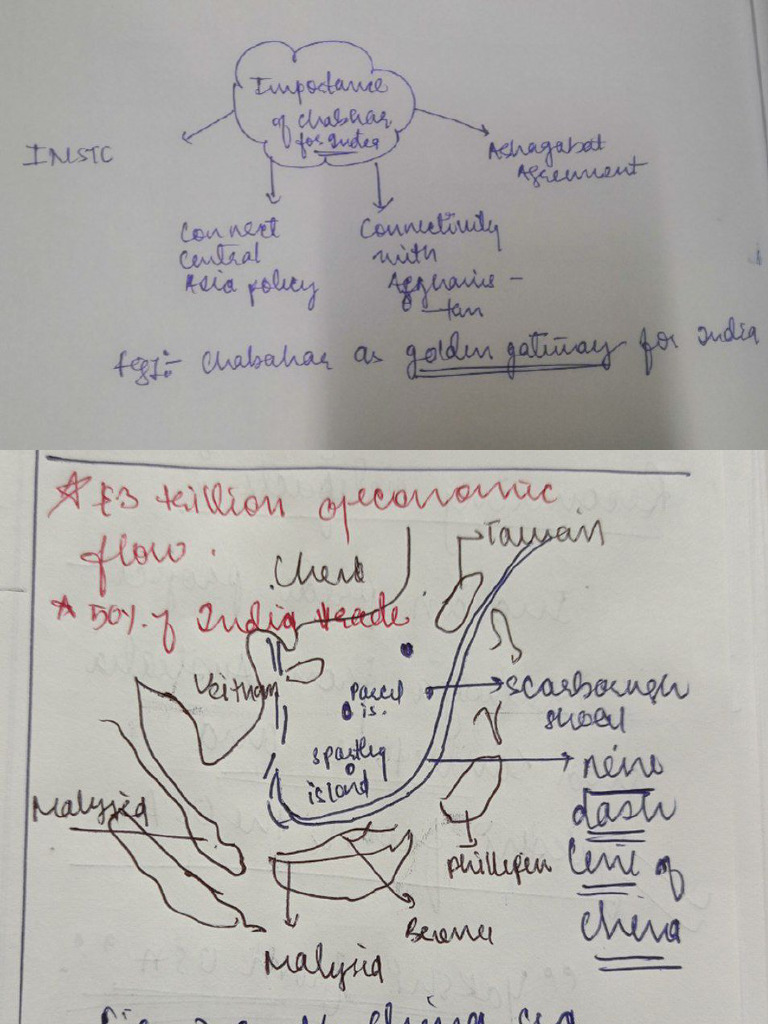 Importance
of chabahar
for India
INSTC
Ashagabat
Agreement
Connect
Central
Asia policy
Connectivity
with
Afghanis -
tan
fig:- Chabahar as golden gateway for India
* £3 trillion of economic
flow.
Taiwan
China
* 50% of India trade
Veitnam
Parcel
is.
Scarborough
shoal
Spartley
island
nine
dash
line of
China
Malysia
Phillepen
Brunei
Malysia